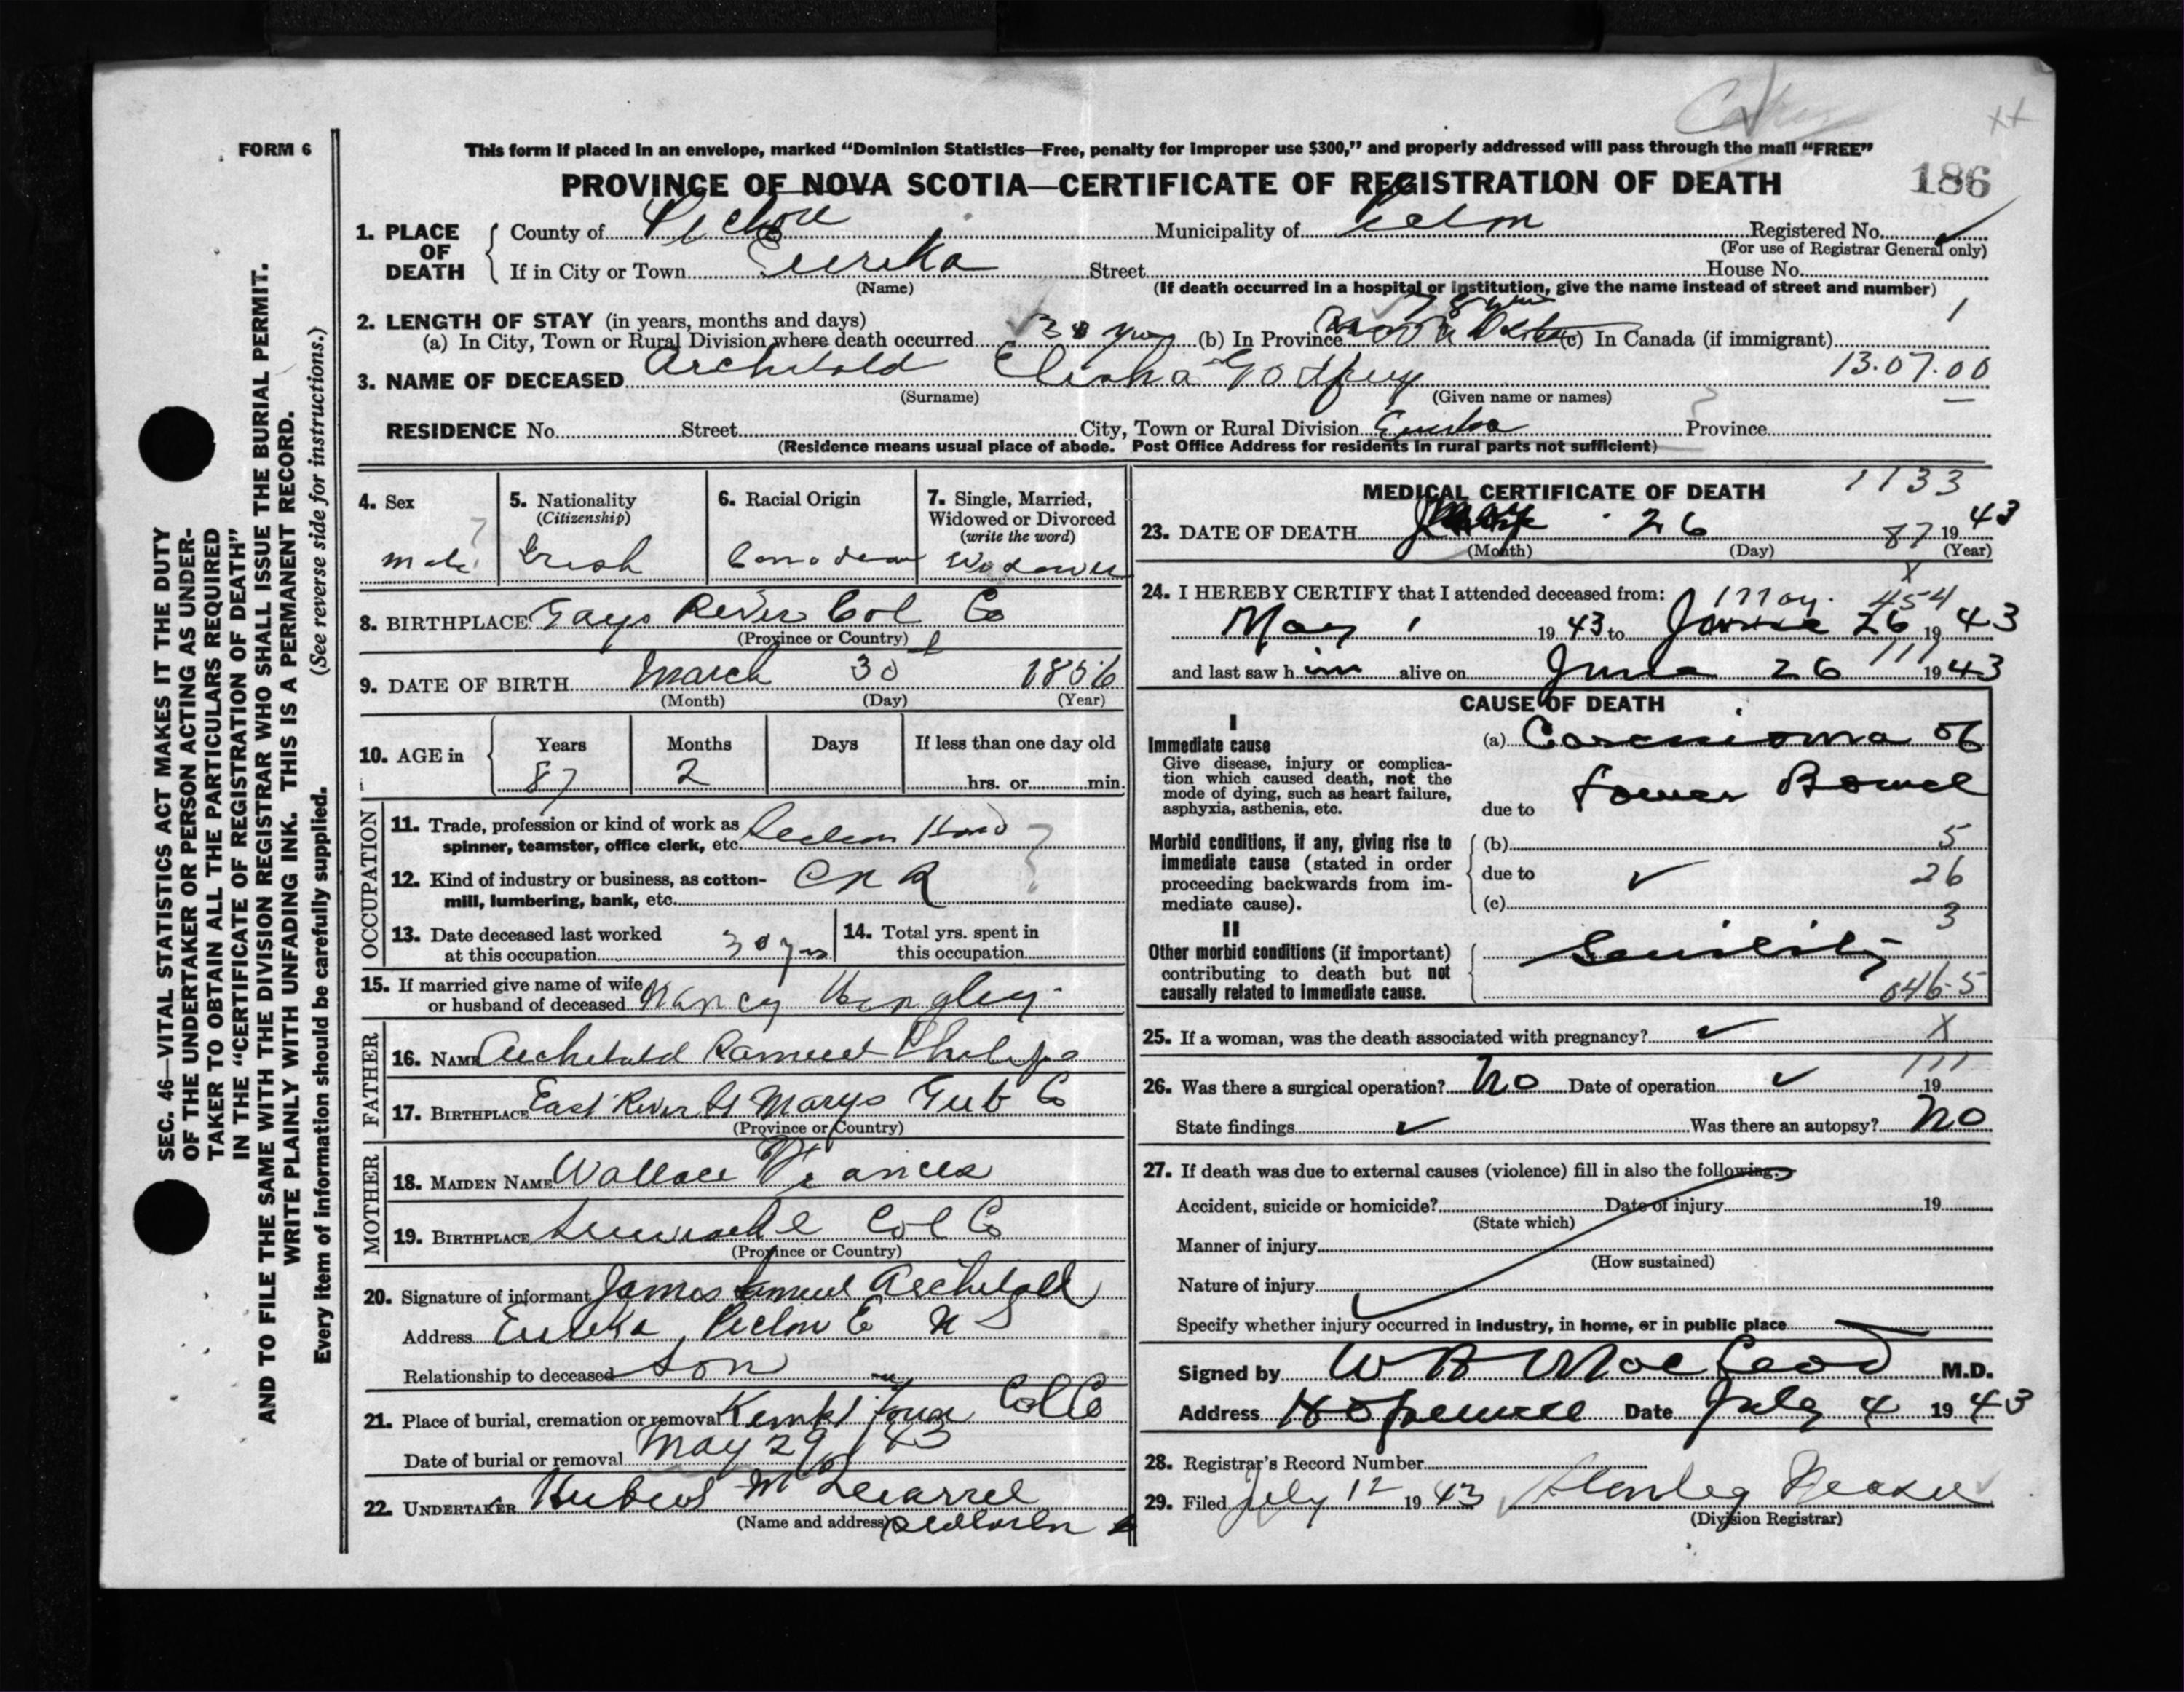 FORM 6
This form if placed in an envelope, marked "Dominion Statistics—Free, penalty for improper use $300," and properly addressed will pass through the mail "FREE"
PROVINCE OF NOVA SCOTIA—CERTIFICATE OF REGISTRATION OF DEATH
186
1. PLACE OF DEATH
County of Pictou Municipality of Registered No.
(For use of Registrar General only)
If in City or Town Eureka Street House No.
(Name)
(If death occurred in a hospital or institution, give the name instead of street and number)
2. LENGTH OF STAY (in years, months and days)
1
(a) In City, Town or Rural Division where death occurred (b) In Province (c) In Canada (if immigrant)
3. NAME OF DECEASED Archibald Elisha Godfrey 13.07.00
(Surname) (Given name or names)
RESIDENCE No. Street City, Town or Rural Division Eureka Province
(Residence means usual place of abode. Post Office Address for residents in rural parts not sufficient)
4. Sex
male
5. Nationality
(Citizenship)
Irish
6. Racial Origin
Canadian
7. Single, Married,
Widowed or Divorced
(write the word)
Widower
8. BIRTHPLACE Gays River Col Co
(Province or Country)
9. DATE OF BIRTH March 30 1856
(Month) (Day) (Year)
10. AGE in
Years Months Days If less than one day old
87 2 hrs. or min.
OCCUPATION
11. Trade, profession or kind of work as
spinner, teamster, office clerk, etc. Section
12. Kind of industry or business, as cotton-
mill, lumbering, bank, etc. C N R
13. Date deceased last worked
at this occupation 30 yrs
14. Total yrs. spent in
this occupation
15. If married give name of wife
or husband of deceased Nancy
FATHER
16. NAME Archibald Samuel
17. BIRTHPLACE East River St Marys Co
(Province or Country)
MOTHER
18. MAIDEN NAME Wallace Frances
19. BIRTHPLACE Col Co
(Province or Country)
20. Signature of informant James Samuel Archibald
Address Eureka, Pictou Co N S
Relationship to deceased Son
21. Place of burial, cremation or removal Kempt Town Col Co
Date of burial or removal May 29 / 43
22. UNDERTAKER
(Name and address)
MEDICAL CERTIFICATE OF DEATH 1133
23. DATE OF DEATH May 26 87 1943
(Month) (Day) (Year)
24. I HEREBY CERTIFY that I attended deceased from: May 454
May 1 1943 to June 26 1943
and last saw him alive on June 26 1943
CAUSE OF DEATH
I
Immediate cause
Give disease, injury or complica-
tion which caused death, not the
mode of dying, such as heart failure,
asphyxia, asthenia, etc.
(a) Carcinoma of
Lower Bowel
due to
Morbid conditions, if any, giving rise to
immediate cause (stated in order
proceeding backwards from im-
mediate cause).
(b) 5
due to 26
(c) 3
II
Other morbid conditions (if important)
contributing to death but not
causally related to immediate cause.
Senility
046.5
25. If a woman, was the death associated with pregnancy? X
26. Was there a surgical operation? No Date of operation 19
State findings Was there an autopsy? No
27. If death was due to external causes (violence) fill in also the following:
Accident, suicide or homicide? Date of injury 19
(State which)
Manner of injury
(How sustained)
Nature of injury
Specify whether injury occurred in industry, in home, or in public place
Signed by W A MacLeod M.D.
Address Hopewell Date July 4 1943
28. Registrar's Record Number
29. Filed July 12 1943 Stanley
(Division Registrar)
SEC. 46—VITAL STATISTICS ACT MAKES IT THE DUTY
OF THE UNDERTAKER OR PERSON ACTING AS UNDER-
TAKER TO OBTAIN ALL THE PARTICULARS REQUIRED
IN THE "CERTIFICATE OF REGISTRATION OF DEATH"
AND TO FILE THE SAME WITH THE DIVISION REGISTRAR WHO SHALL ISSUE THE BURIAL PERMIT.
WRITE PLAINLY WITH UNFADING INK. THIS IS A PERMANENT RECORD.
Every item of information should be carefully supplied. (See reverse side for instructions.)